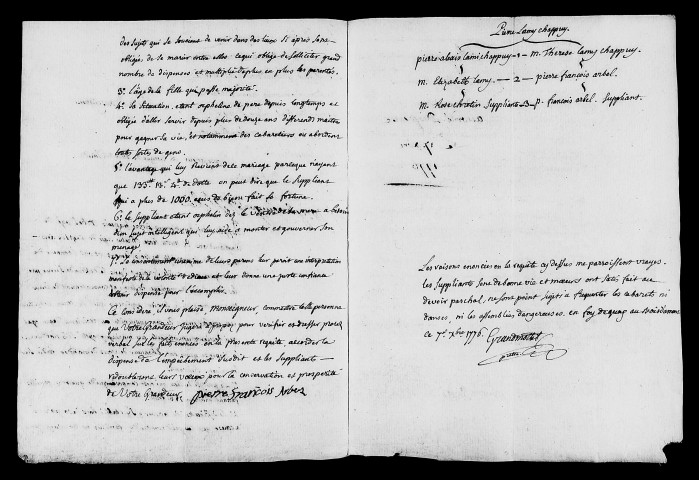 des sujets qui se soucient de venir dans des lieux si après sont
obligés de se marier entre elles ce qui oblige de solliciter grand
nombre de dispenses et multiplie de plus en plus les parentés.
3° l'age de la fille qui passe majorité.
4° la situation, etant orpheline de pere depuis longtemps et
obligée d'aller servir depuis plus de douze ans differends maitres
pour gagner sa vie, et notamment des cabaretiers ou abordent
toutes sortes de gens.
5° l'avantage qui luy revient de ce mariage parceque n'ayant
que 133# 13s 4d de dotte on peut dire que le Suppliant
qui a plus de 1000 ecus de bien fait sa fortune.
6° le suppliant etant orphelin de a besoin
d'un sujet intelligent qui luy aide a monter et gouverner son
menage.
7° Le consentement unanime de leurs parens leur parait une interpretation
manifeste de la volonté de dieu et leur donne une juste confiance
dispense pour l'accomplir.
Ce consideré il vous plaise, Monseigneur, commettre telle personne
que Votre Grandeur jugera à propos pour verifier et dresser procez
verbal sur les faits enoncés en la presente requete, accorder la
dispense de l'empechement susdit et les Suppliants
redoubleront leurs voeux pour la conservation et prosperité
de Votre Grandeur. pierre françois Arbel
Pierre Lamy chappuy
pierre alexis lami chappuy 1 m. Therese lamy chappuy.
m. Elizabeth lamy. — 2 — pierre françois arbel.
m. Rose Suppliante 3 p. françois arbel. Suppliant.
Les raisons enoncées en la requete cy dessus me paroissent vrayes.
les suppliants sont de bonne vie et moeurs ont satisfait au
devoir paschal, ne sont point sujets à frequenter les cabarets ni
danses, ni les assemblées dangereuses. en foy de quoy
ce 7e Xbre 1776. Grandmottet